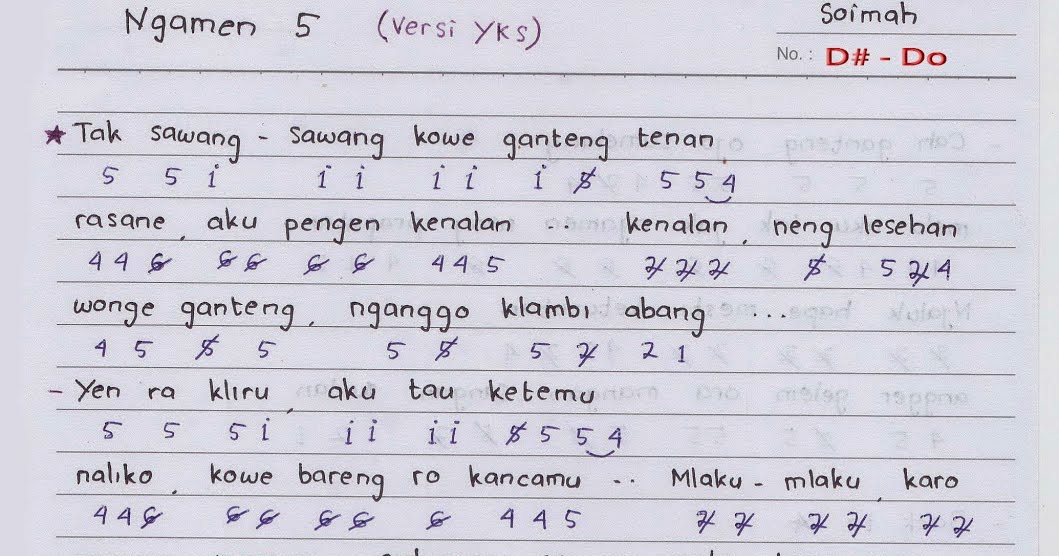 Ngamen 5 (Versi YKS)
Soimah
No. : D# - Do
★ Tak sawang - sawang kowe ganteng tenan
5 5 i i i i i i 5̸ 5 5 4
rasane, aku pengen kenalan .. kenalan, neng lesehan
4 4 6̸ 6̸ 6̸ 6̸ 6̸ 4 4 5 2̸ 2̸ 2̸ 5̸ 5 2̸ 4
wonge ganteng, nganggo klambi abang ...
4 5 5̸ 5 5 5̸ 5 2̸ 2 1
- Yen ra kliru, aku tau ketemu
5 5 5 i i i i i 5̸ 5 5 4
naliko, kowe bareng ro kancamu .. Mlaku - mlaku, karo
4 4 6̸ 6̸ 6̸ 6̸ 6̸ 6̸ 4 4 5 2̸ 2̸ 2̸ 2̸ 2̸ 2̸